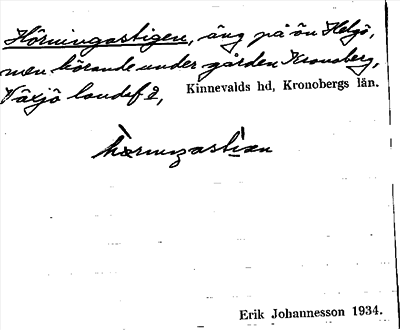 Hörningastigen, äng på ön Helgö,
men hörande under gården Kronoberg,
Växjö landsf.,
Kinnevalds hd, Kronobergs län.
Erik Johannesson 1934.